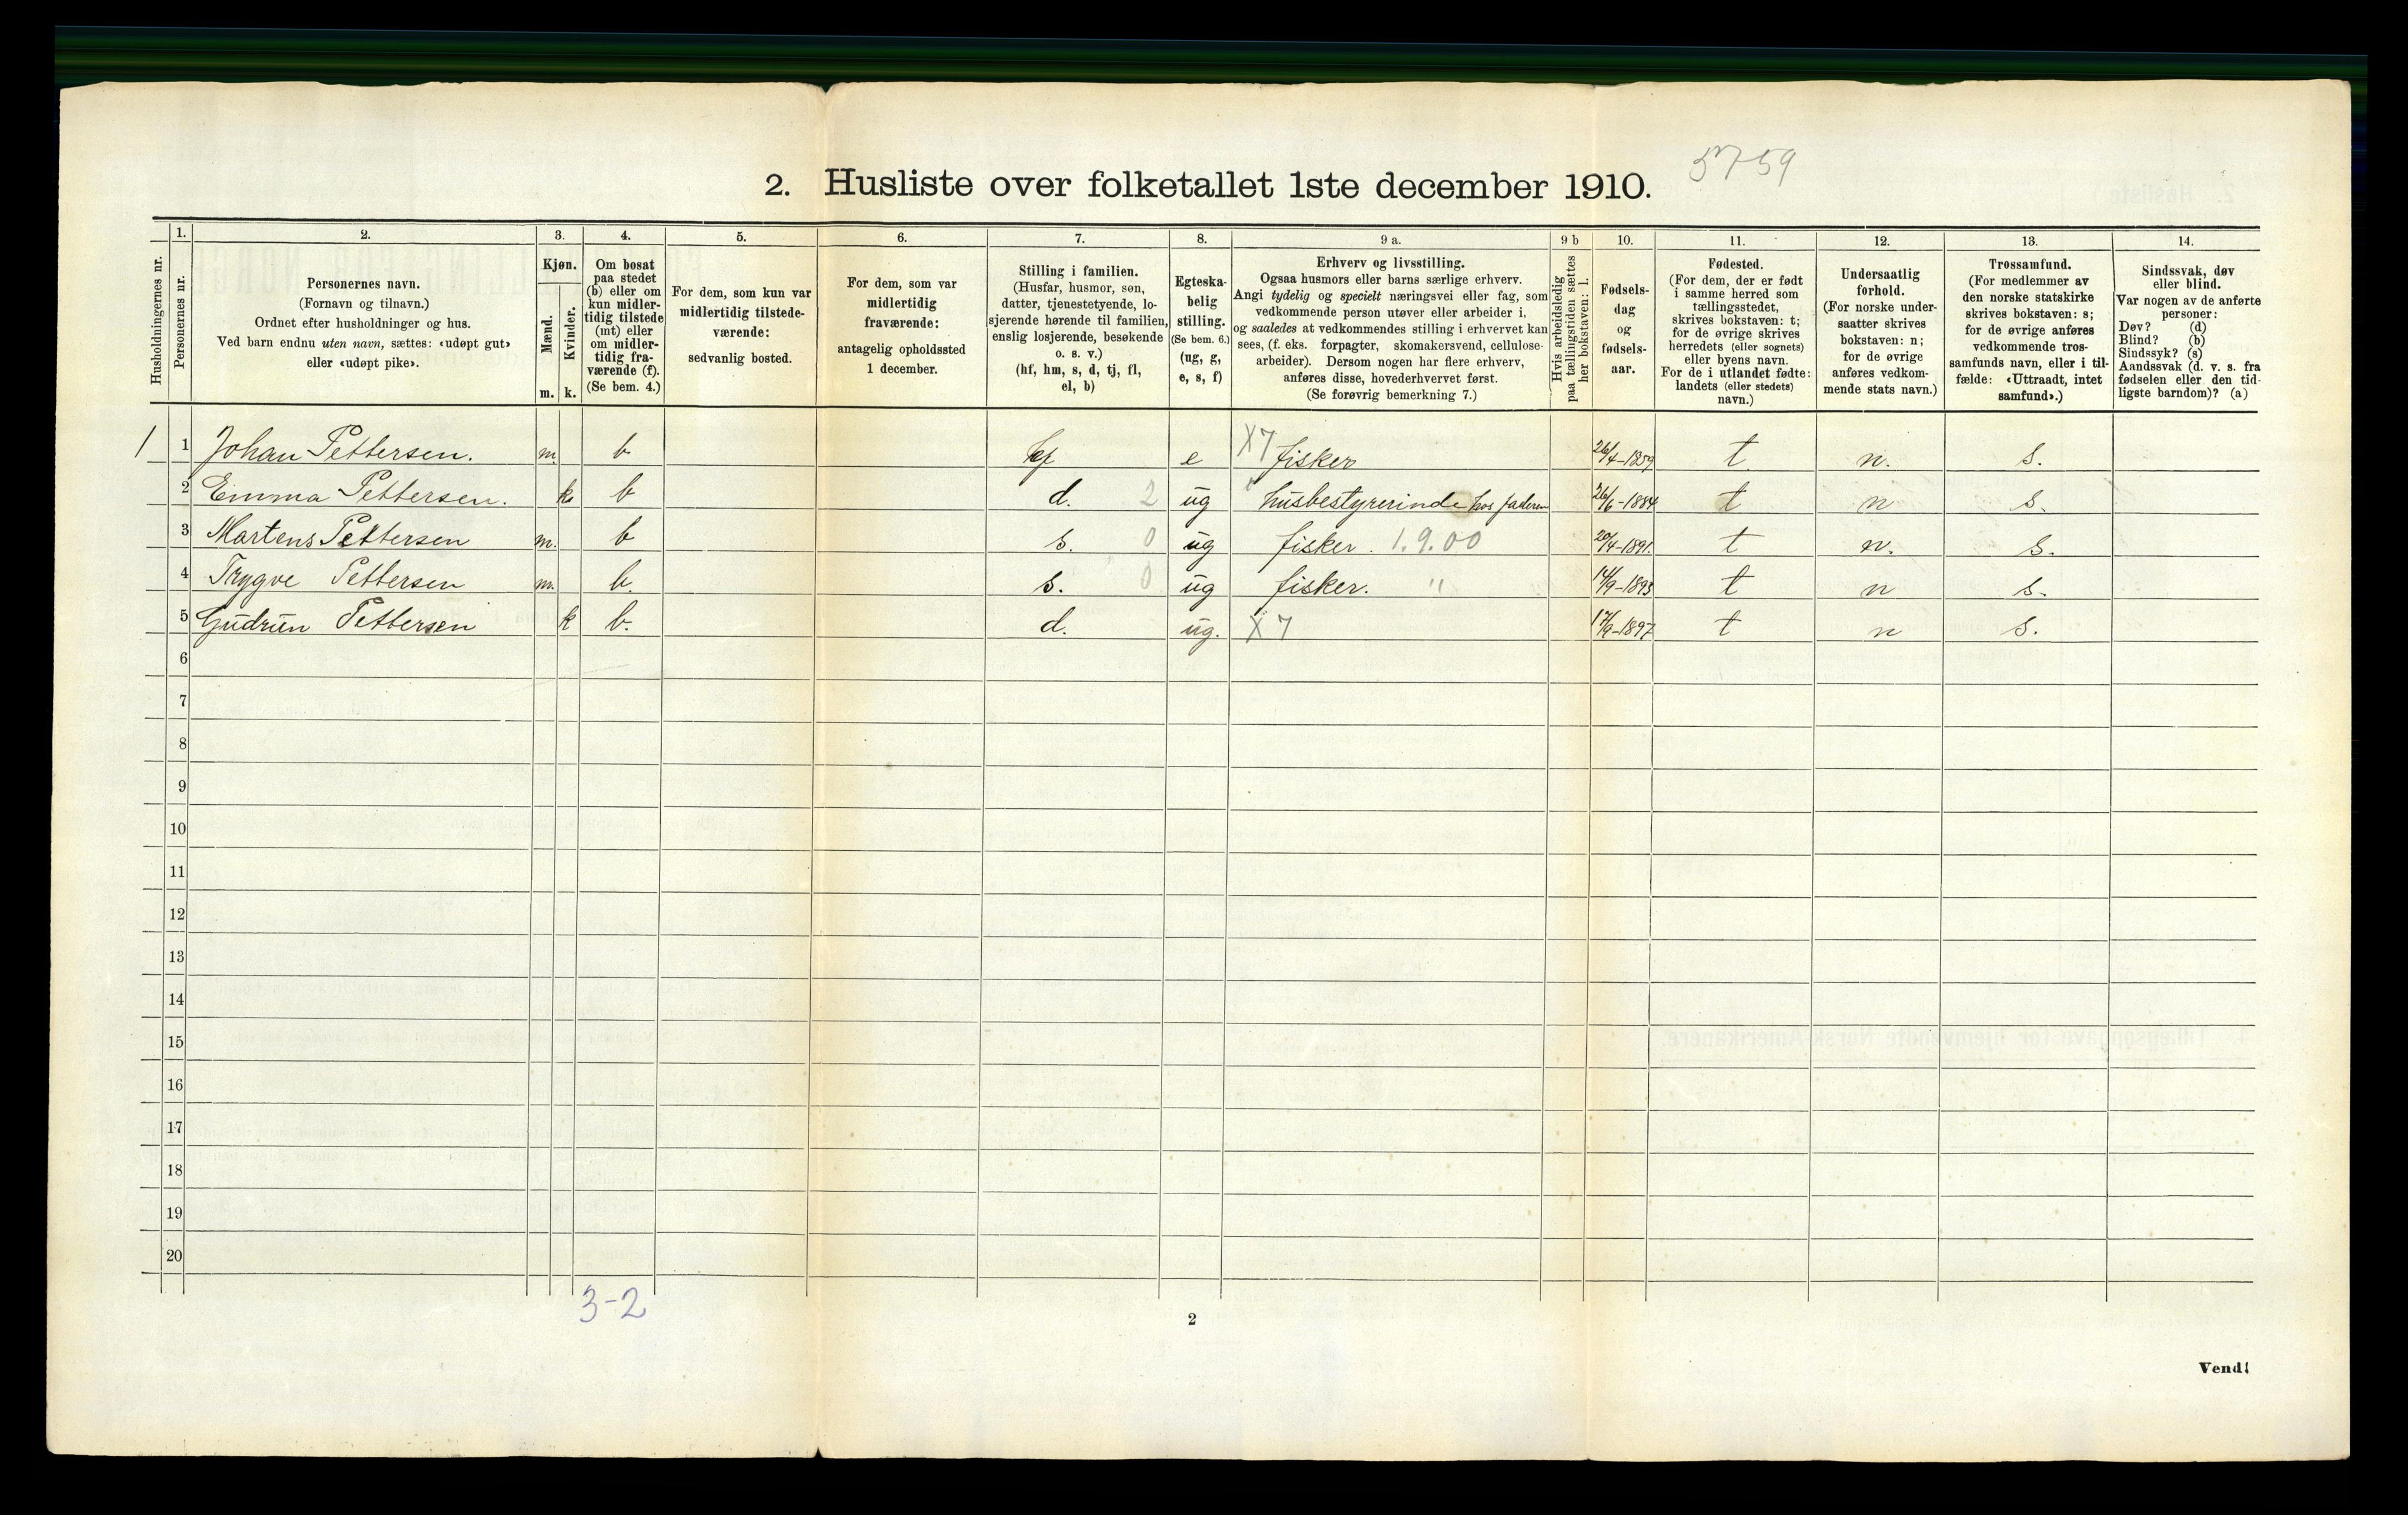 5759
2. Husliste over folketallet 1ste december 1910.
1. 2. 3. 4. 5. 6. 7. 8. 9 a. 9 b 10. 11. 12. 13. 14.
Husholdningernes nr.
Personernes nr.
Personernes navn.
(Fornavn og tilnavn.)
Ordnet efter husholdninger og hus.
Ved barn endnu uten navn, sættes: «udøpt gut»
eller «udøpt pike».
Kjøn.
Mænd.
Kvinder.
m. k.
Om bosat
paa stedet
(b) eller om
kun midler-
tidig tilstede
(mt) eller
om midler-
tidig fra-
værende (f).
(Se bem. 4.)
For dem, som kun var
midlertidig tilstede-
værende:
sedvanlig bosted.
For dem, som var
midlertidig
fraværende:
antagelig opholdssted
1 december.
Stilling i familien.
(Husfar, husmor, søn,
datter, tjenestetyende, lo-
sjerende hørende til familien,
enslig losjerende, besøkende
o. s. v.)
(hf, hm, s, d, tj, fl,
el, b)
Egteska-
belig
stilling.
(Se bem. 6.)
(ug, g,
e, s, f)
Erhverv og livsstilling.
Ogsaa husmors eller barns særlige erhverv.
Angi tydelig og specielt næringsvei eller fag, som
vedkommende person utøver eller arbeider i,
og saaledes at vedkommendes stilling i erhvervet kan
sees, (f. eks. forpagter, skomakersvend, cellulose-
arbeider). Dersom nogen har flere erhverv,
anføres disse, hovederhvervet først.
(Se forøvrig bemerkning 7.)
Hvis arbeidsledig
paa tællingstiden sættes
her bokstaven: l.
Fødsels-
dag
og
fødsels-
aar.
Fødested.
(For dem, der er født
i samme herred som
tællingsstedet,
skrives bokstaven: t;
for de øvrige skrives
herredets (eller sognets)
eller byens navn.
For de i utlandet fødte:
landets (eller stedets)
navn.)
Undersaatlig
forhold.
(For norske under-
saatter skrives
bokstaven: n;
for de øvrige
anføres vedkom-
mende stats navn.)
Trossamfund.
(For medlemmer av
den norske statskirke
skrives bokstaven: s;
for de øvrige anføres
vedkommende tros-
samfunds navn, eller i til-
fælde: «Uttraadt, intet
samfund».)
Sindssvak, døv
eller blind.
Var nogen av de anførte
personer:
Døv? (d)
Blind? (b)
Sindssyk? (s)
Aandssvak (d. v. s. fra
fødselen eller den tid-
ligste barndom)? (a)
1 1 Johan Pettersen. m. b hf e X7 fisker 26/4-1859 t n. s.
2 Emma Pettersen. k. b d. 2 ug husbestyrerinde hos faderen 26/6-1884 t n s.
3 Martens Pettersen m. b s. 0 ug fisker. 1.9.00 20/4-1891. t n. s.
4 Trygve Pettersen m. b. s. 0 ug fisker. " 14/9-1893 t n s.
5 Gudrun Pettersen k b. d. ug. X7 17/9-1897 t n s.
6
7
8
9
10
11
12
13
14
15
16
17
18
19
20
3-2
2
Vend!